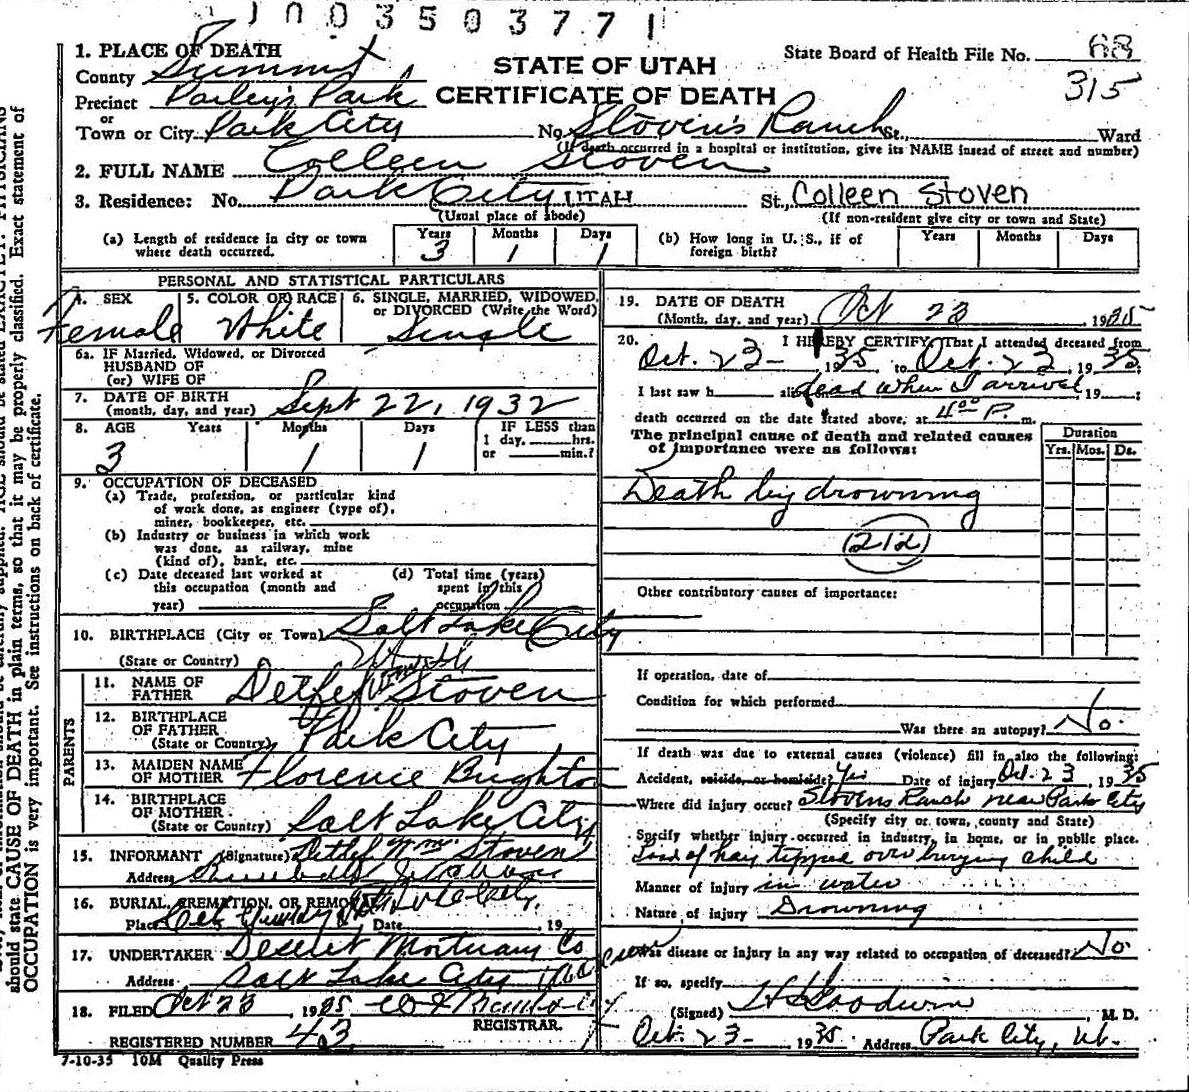 1003503771
1. PLACE OF DEATH
County Summit
Precinct Parley's Park
or
Town or City Park City No. Stoven's Ranch St., Ward
(If death occurred in a hospital or institution, give its NAME insead of street and number)
STATE OF UTAH
CERTIFICATE OF DEATH
State Board of Health File No. 68
315
2. FULL NAME Colleen Stoven
3. Residence: No. Park City UTAH St., Colleen Stoven
(Usual place of abode) (If non-resident give city or town and State)
(a) Length of residence in city or town where death occurred. Years 3 Months 1 Days 1
(b) How long in U. S., if of foreign birth? Years Months Days
PERSONAL AND STATISTICAL PARTICULARS
4. SEX Female
5. COLOR OR RACE White
6. SINGLE, MARRIED, WIDOWED, or DIVORCED (Write the Word) Single
6a. IF Married, Widowed, or Divorced
HUSBAND OF
(or) WIFE OF
7. DATE OF BIRTH
(month, day, and year) Sept 22, 1932
8. AGE Years 3 Months 1 Days 1
IF LESS than
1 day, hrs.
or min.?
9. OCCUPATION OF DECEASED
(a) Trade, profession, or particular kind
of work done, as engineer (type of),
miner, bookkeeper, etc.
(b) Industry or business in which work
was done, as railway, mine
(kind of), bank, etc.
(c) Date deceased last worked at
this occupation (month and
year)
(d) Total time (years)
spent in this
occupation
10. BIRTHPLACE (City or Town) Salt Lake City
(State or Country) Utah
PARENTS
11. NAME OF FATHER Detlef Wm Stoven
12. BIRTHPLACE OF FATHER
(State or Country) Park City
13. MAIDEN NAME OF MOTHER Florence Brighton
14. BIRTHPLACE OF MOTHER
(State or Country) Salt Lake City
15. INFORMANT (Signature) Detlef Wm. Stoven
Address
16. BURIAL, CREMATION, OR REMOVAL
Place Date , 19
17. UNDERTAKER Deseret Mortuary Co
Address Salt Lake City
18. FILED Oct 23 1935
REGISTRAR.
REGISTERED NUMBER 43
7-10-35 10M Quality Press
19. DATE OF DEATH
(Month, day, and year) Oct 23, 1935
20. I HEREBY CERTIFY, That I attended deceased from
Oct. 23-, 1935 to Oct. 23, 1935;
I last saw h alive dead when I arrived, 19 ;
death occurred on the date stated above, at 4:00 P. m.
The principal cause of death and related causes
of importance were as follows:
Duration
Yrs. Mos. Ds.
Death by drowning
(212)
Other contributory causes of importance:
If operation, date of
Condition for which performed
Was there an autopsy? No
If death was due to external causes (violence) fill in also the following:
Accident, suicide, or homicide? Yes Date of injury Oct. 23, 1935
Where did injury occur? Stovens Ranch near Park City
(Specify city or town, county and State)
Specify whether injury occurred in industry, in home, or in public place.
Load of hay tipped over burying child
Manner of injury in water
Nature of injury Drowning
Was disease or injury in any way related to occupation of deceased? No
If so, specify
(Signed) Goodwin, M. D.
Oct. 23- 1935 Address Park City, Ut.
should state CAUSE OF DEATH in plain terms, so that it may be properly classified. Exact statement of
OCCUPATION is very important. See instructions on back of certificate.